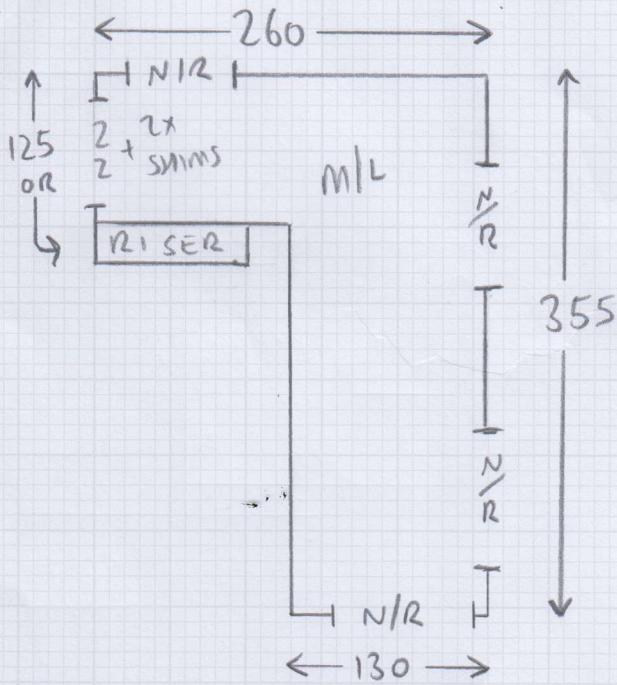 260
N/R
125
OR
2 + 2x
2 SHIMS
M/L
N/R
RISER
355
N/R
N/R
130